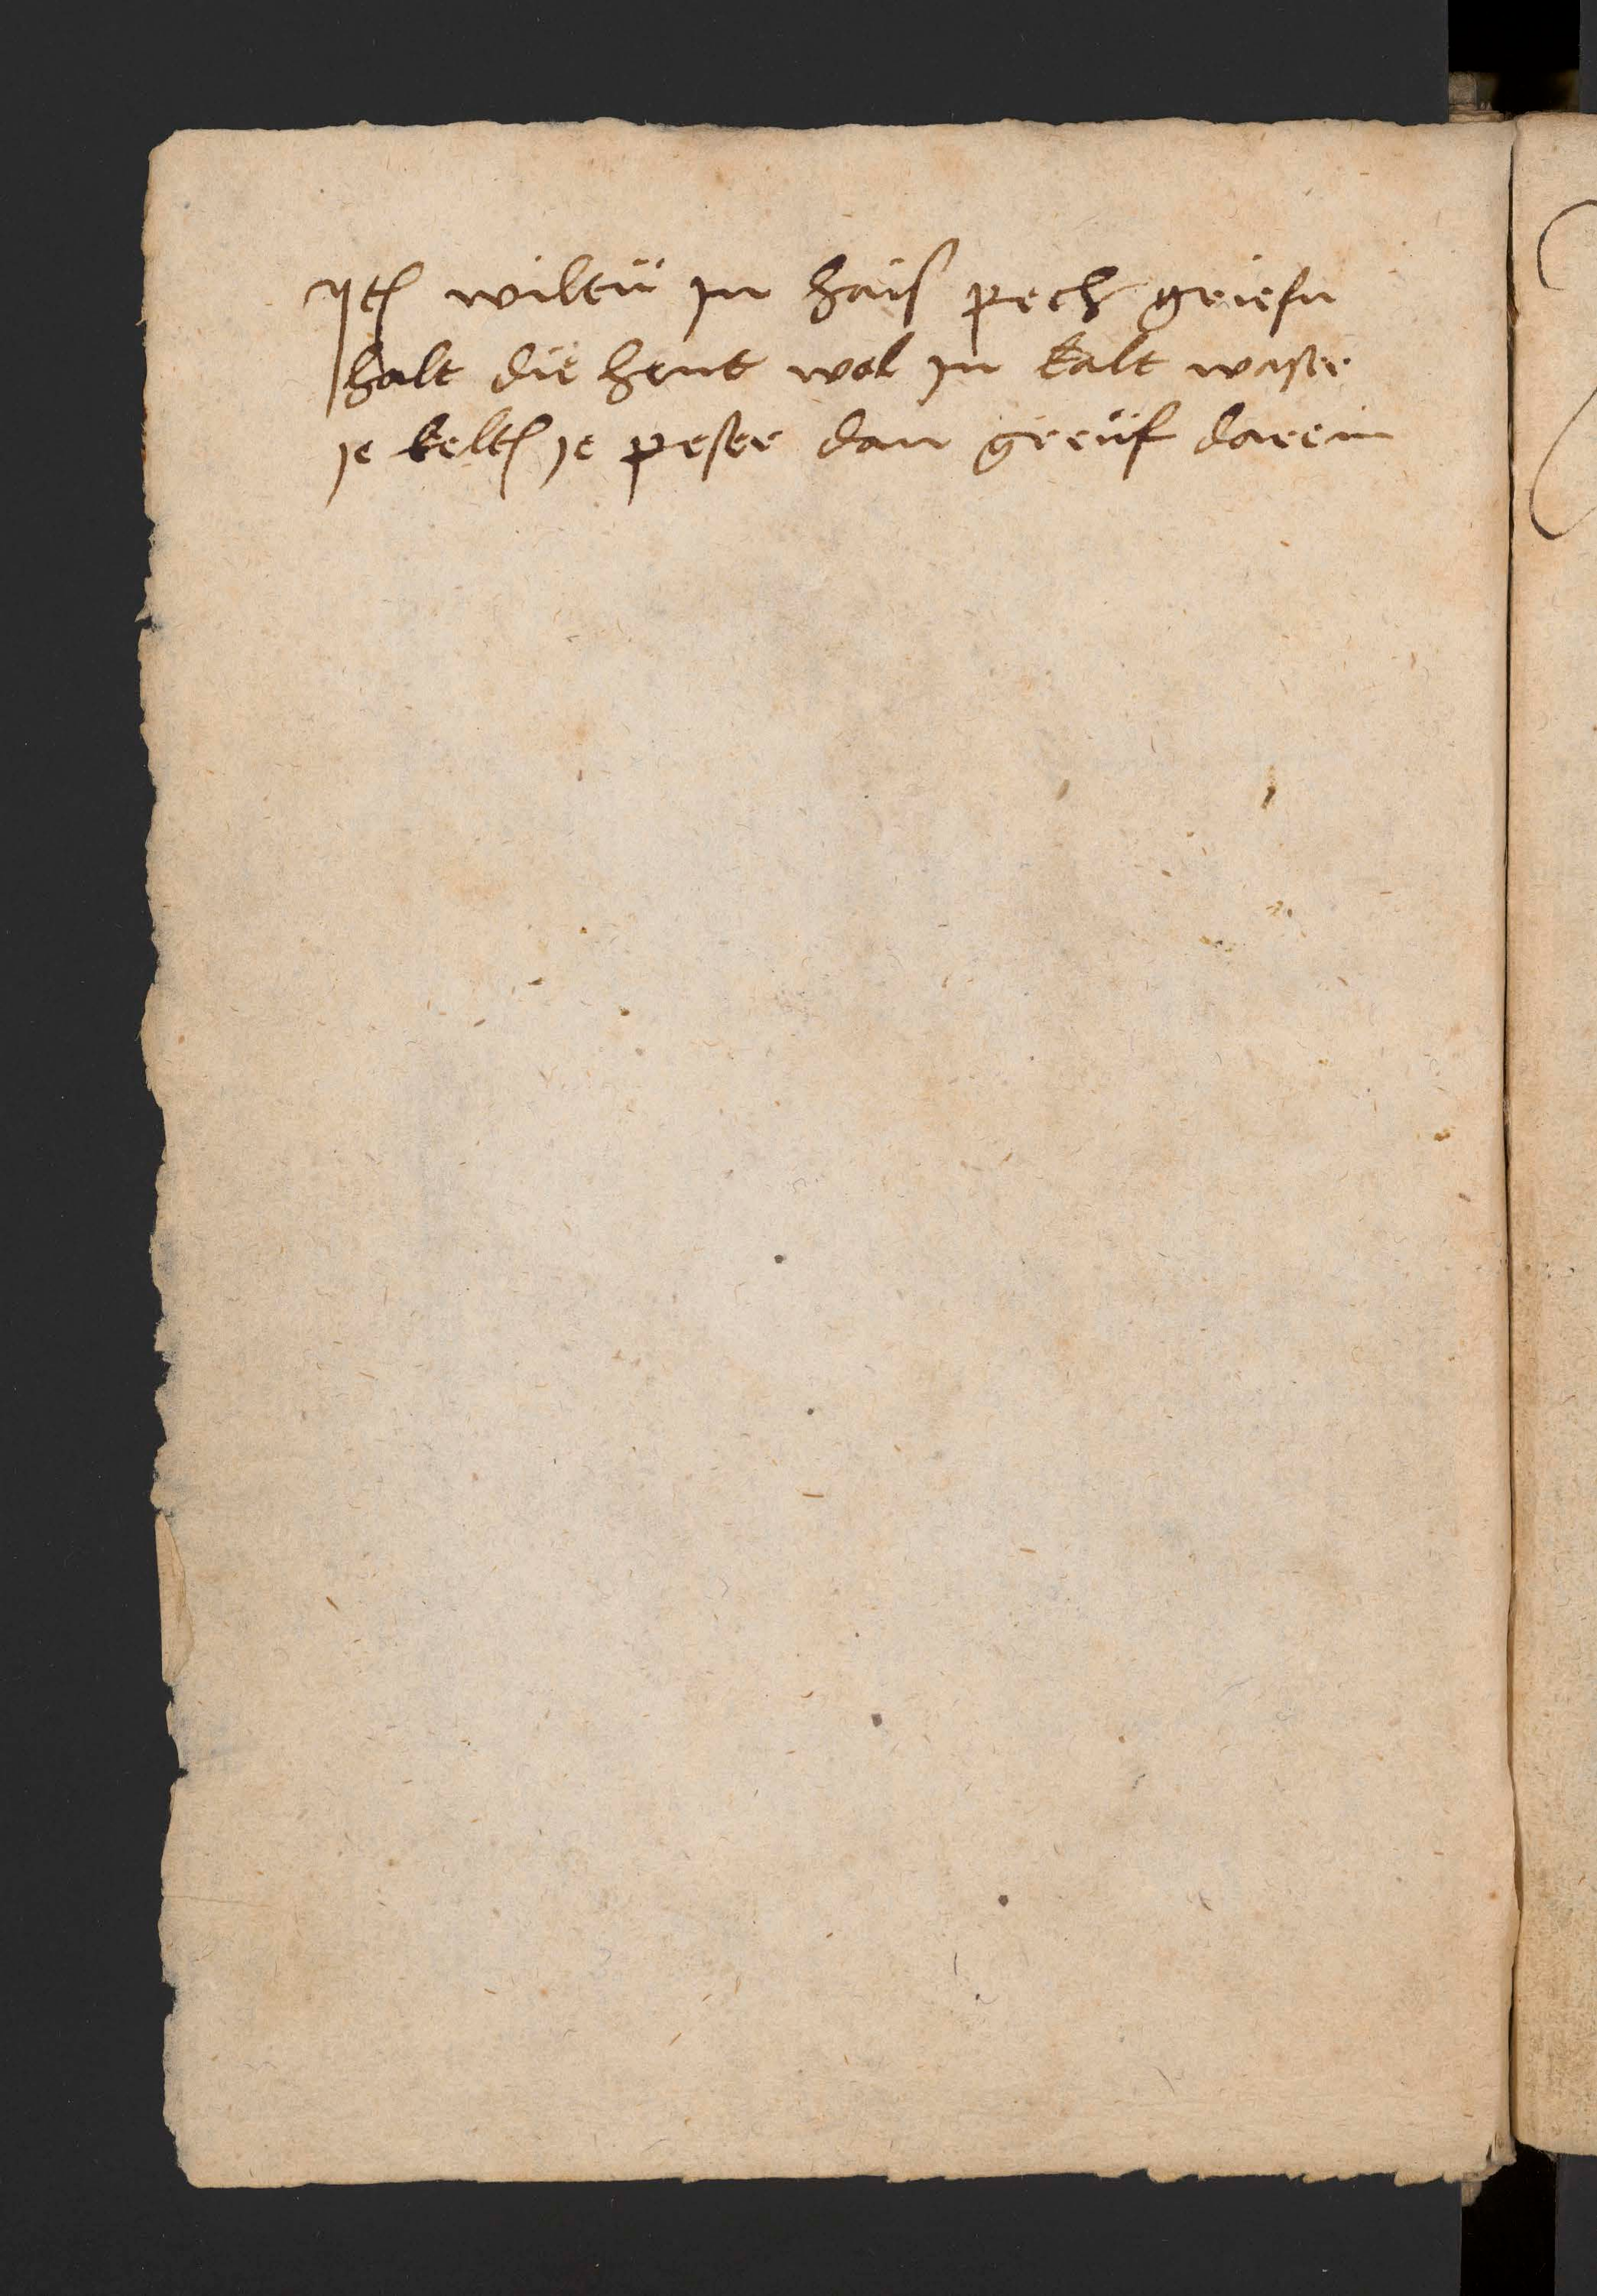 Jt(em) wiltü jn haiß pech griefn
halt die hent wol jn kalt waßer
je kelt(er) je peßer dan greüf darein